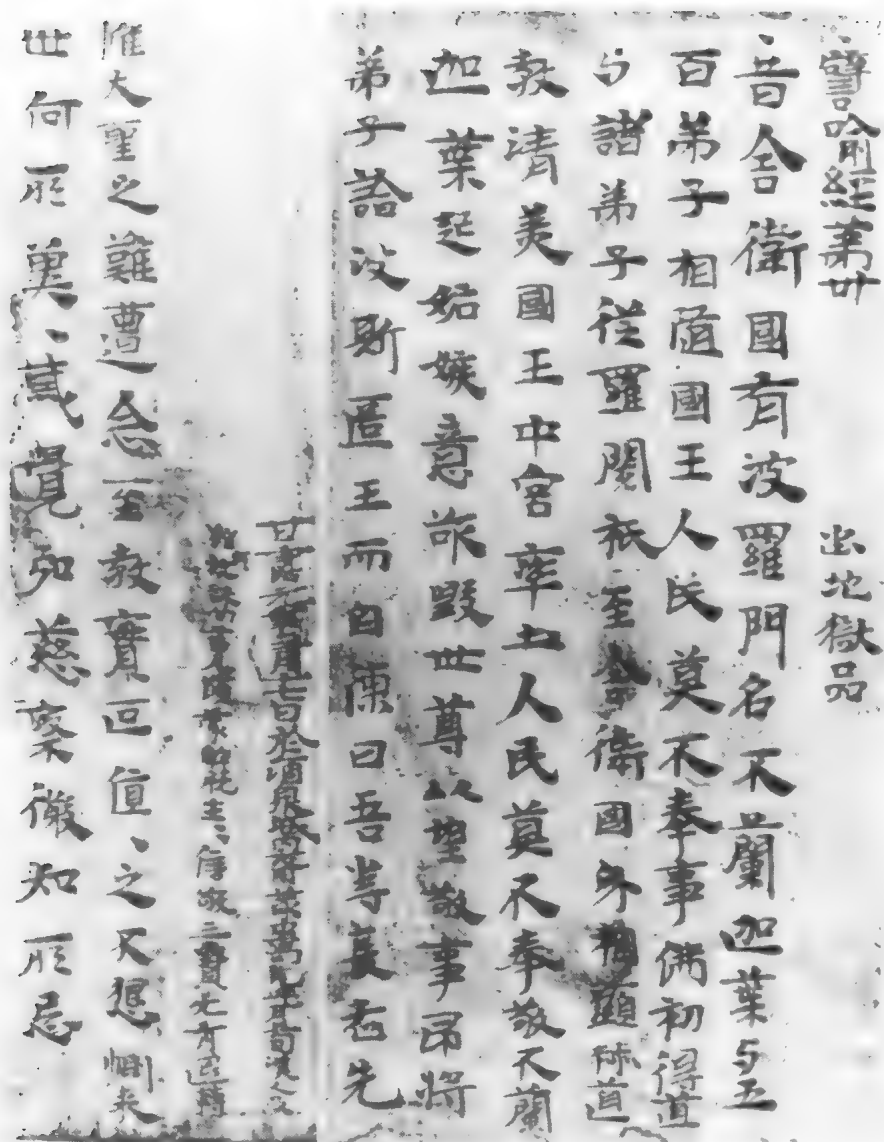 譬喻經第卅　出地獄品
昔舍衛國有波羅門名不蘭迦葉与五
百弟子相隨國王人民莫不奉事佛初得道
与諸弟子從羅閱祇至舍衛國身相顯赫道
教清美國王中宮率土人民莫不奉敬不蘭
迦葉起妬嫉意欲毀世尊以望敬事即將
弟子詣波斯匿王而自陳曰吾等長老先
甘露元年三月十七日於酒泉城
生、信敬三寶无有退轉
惟大聖之難遭念至教實叵值、之不
世何所兾、覺知慈案徹知所忌